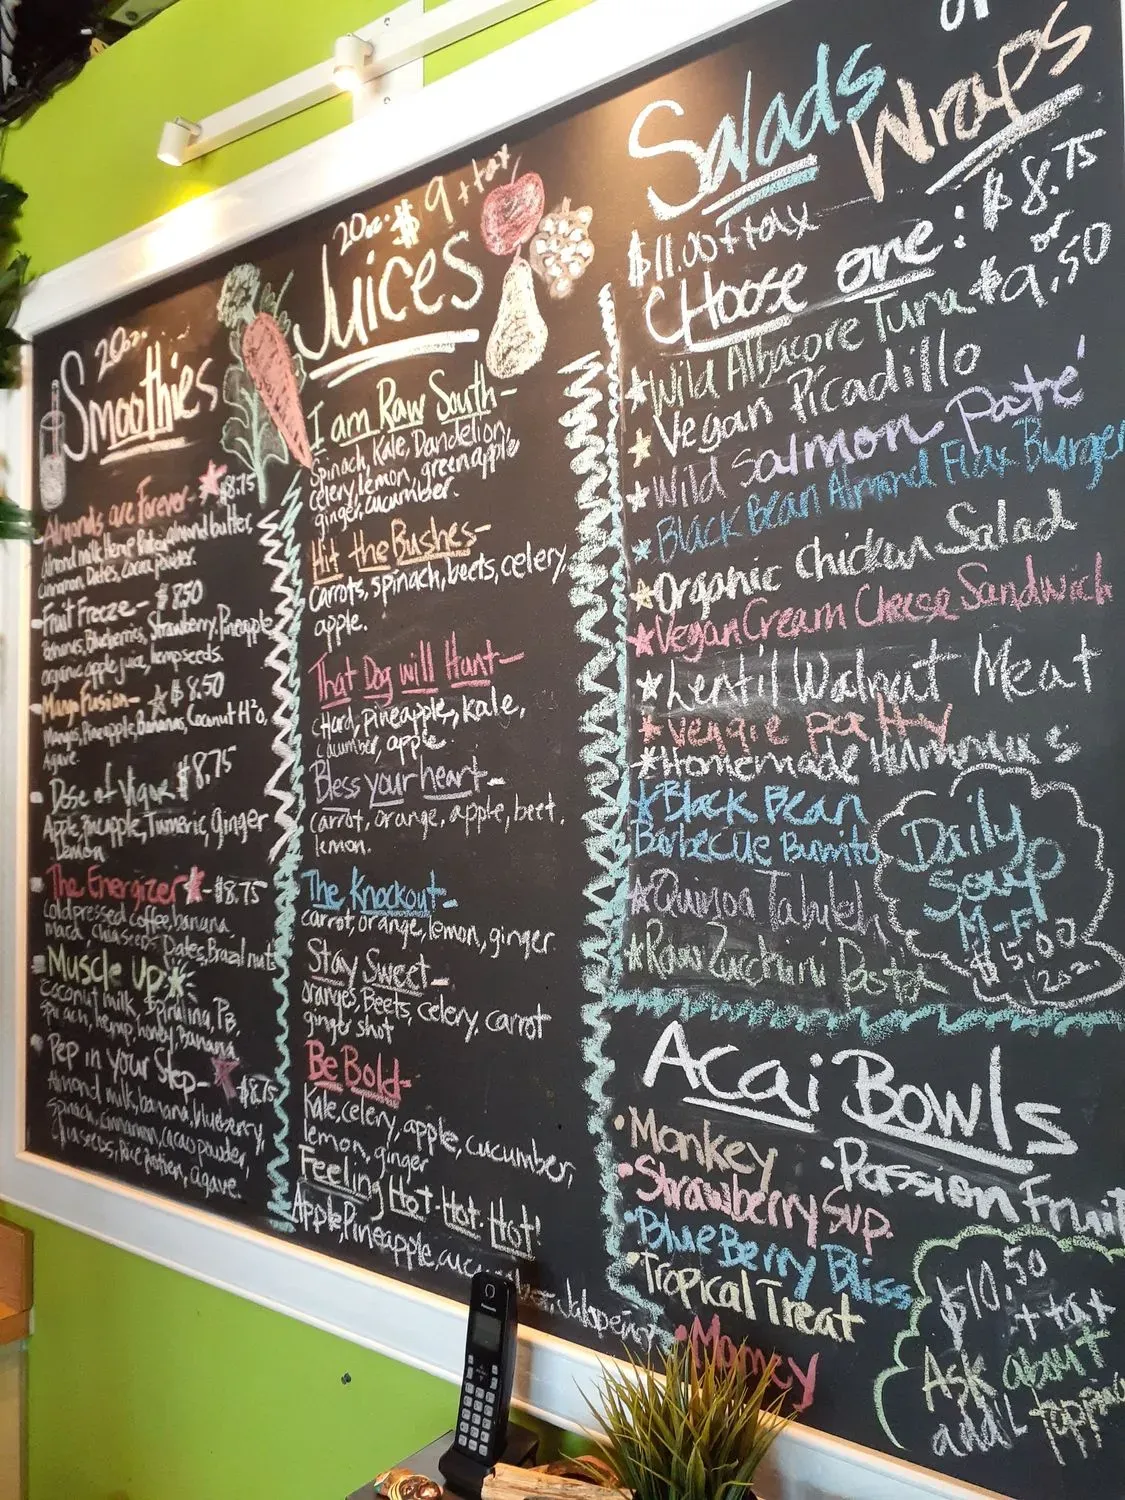 20oz.
Smoothies
Almonds are Forever- $8.75
Almond milk, Hemp Protein, almond butter,
cinnamon, Dates, Cacao powder.
Fruit Freeze- $8.50
Bananas, Blueberries, Strawberry, Pineapple
organic apple juice, hempseeds.
Mango Fusion- $8.50
Mangos, Pineapple, Bananas, Coconut H²O,
Agave.
Dose of Vigor $8.75
Apple, Pineapple, Turmeric, ginger
Lemon
The Energizer - $8.75
Cold pressed coffee, banana
maca chiaseeds Dates, Brazil nuts
Muscle Up
coconut milk, spirulina, PB,
spinach, hemp, honey, banana
Pep in your Step- $8.75
Almond milk, banana, blueberry,
spinach, cinnamon, cacao powder,
chiaseeds, Rice protien, agave.
20oz. $9 + tax
Juices
I am Raw South-
Spinach, Kale, Dandelion,
celery, lemon, green apple
ginger, cucumber.
Hit the Bushes-
Carrots, spinach, beets, celery,
apple.
That Dog will Hunt-
Chard, pineapple, kale,
cucumber, apple
Bless your heart-
Carrot, orange, apple, beet,
lemon.
The Knockout-
carrot, orange, lemon, ginger
Stay Sweet-
oranges, Beets, celery, carrot
ginger shot
Be Bold-
Kale, celery, apple, cucumber,
lemon, ginger
Feeling Hot-Hot-Hot!
Apple, Pineapple, Jalapeno
Salads or
Wraps
$11.00 + tax $8.75
Choose one: or
Wild Albacore Tuna $9.50
Vegan Picadillo
Wild Salmon Paté
Black Bean Almond Flax Burger
Organic Chicken Salad
Vegan Cream Cheese Sandwich
Lentil Walnut Meat
Veggie patty
Homemade Hummus
Black Bean
Barbecue Burrito
Quinoa Tabuleh
Raw Zucchini Pasta
Daily
Soup
M-F
$5.00
12oz.
Acai Bowls
Monkey
Passion Fruit
Strawberry Sup.
Blue Berry Bliss
Tropical Treat
$10.50
+ tax
Ask about
add'l